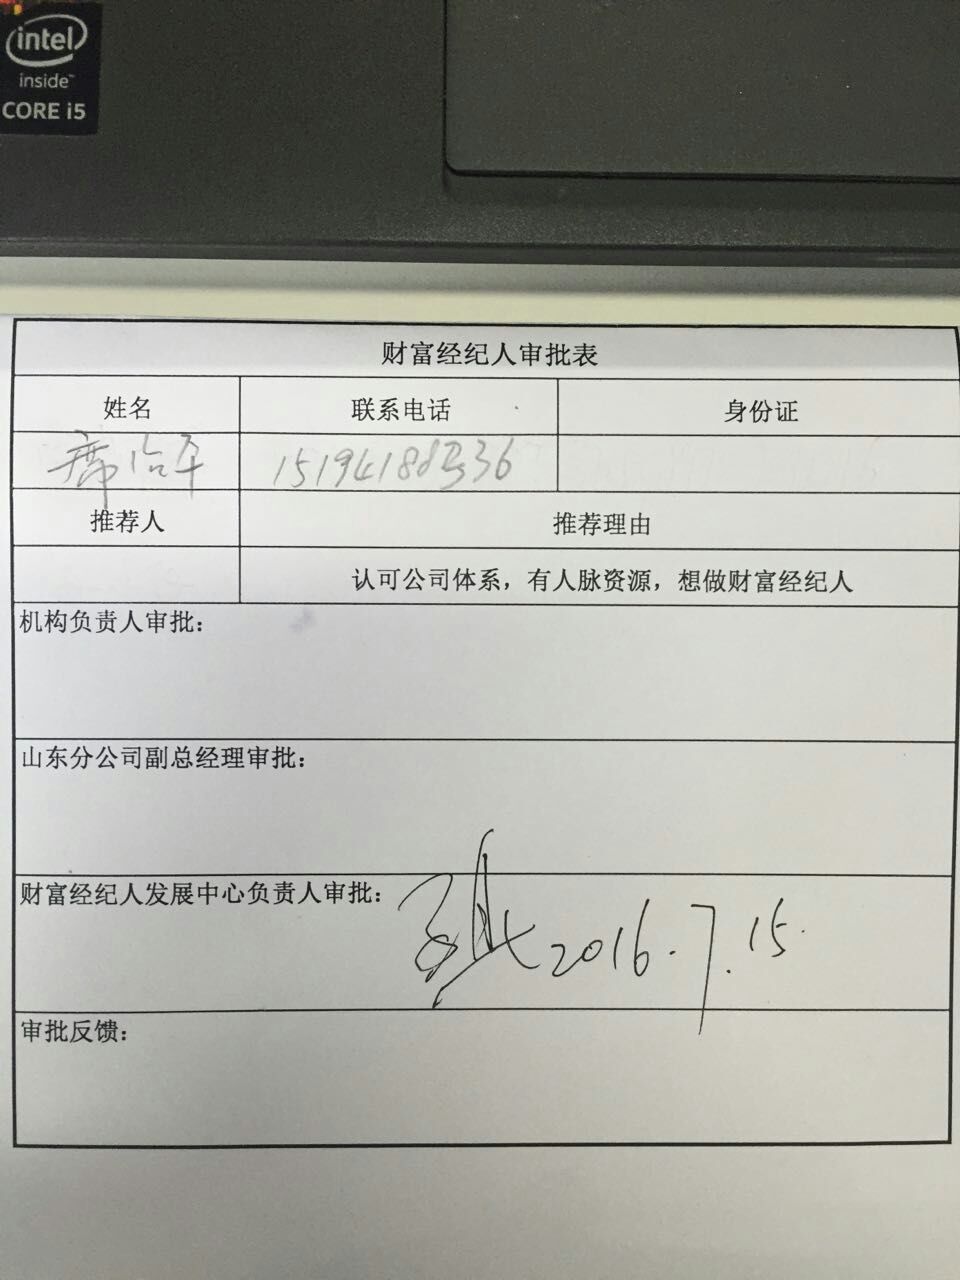 intel
inside™
CORE i5
财富经纪人审批表
姓名 联系电话 身份证
席治平
推荐人 推荐理由
认可公司体系，有人脉资源，想做财富经纪人
机构负责人审批：
山东分公司副总经理审批：
财富经纪人发展中心负责人审批： 2016.7.15.
审批反馈：